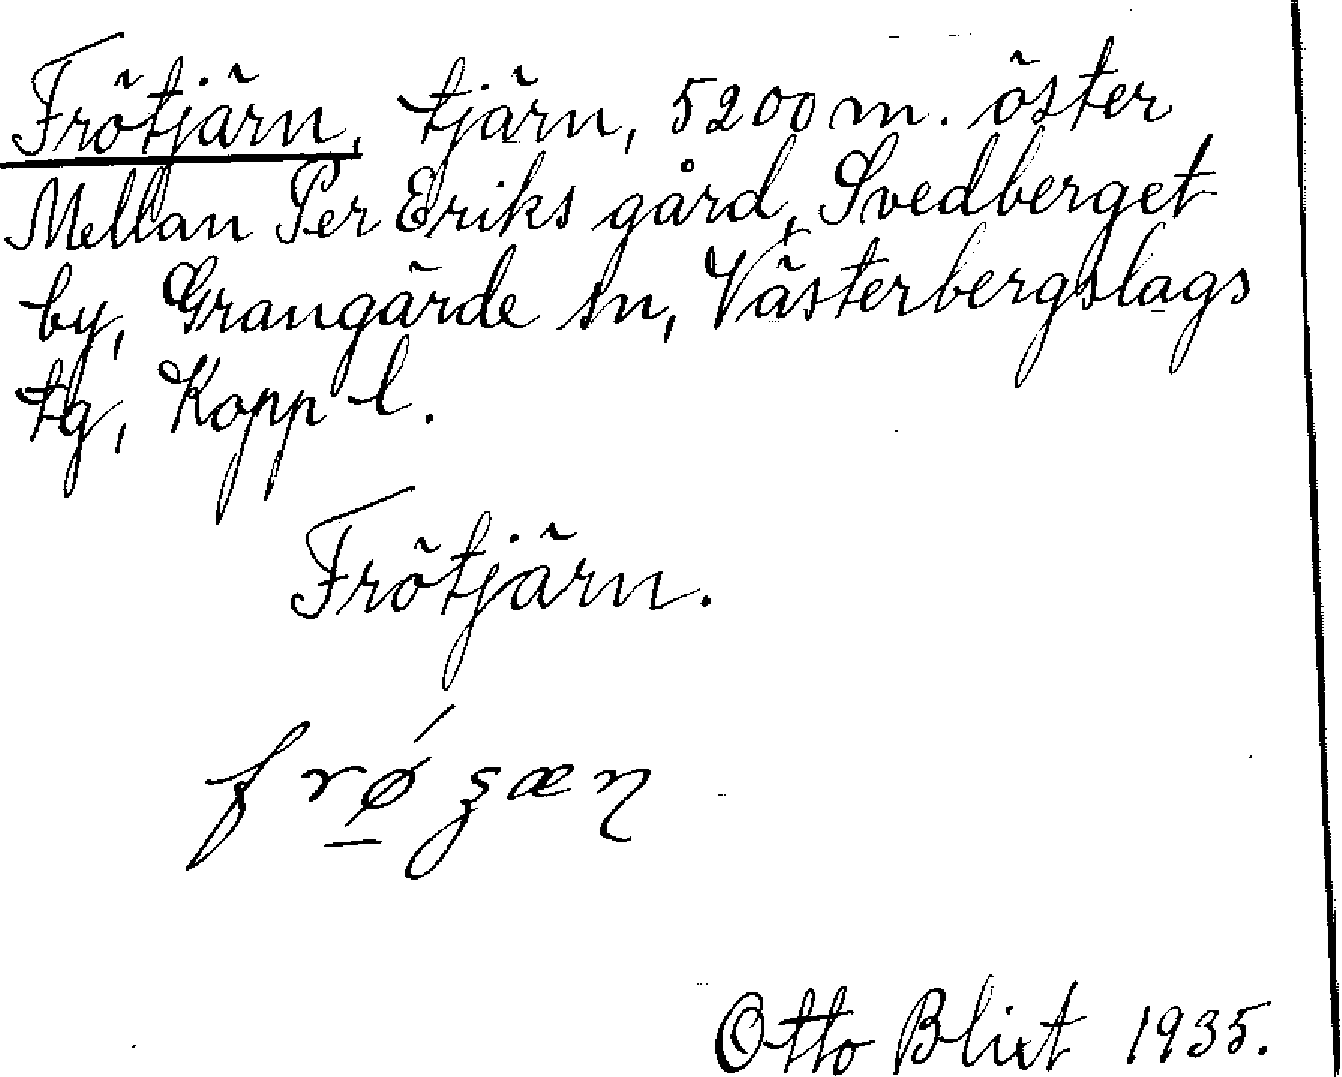 Frötjärn, tjärn, 5200 m. öster
Mellan Per Eriks gård, Svedberget
by, Grangärde sn, Västerbergslags
tg, Kopp l.
Frötjärn.
frǿ̱ʒæɳ
Otto Blixt 1935.